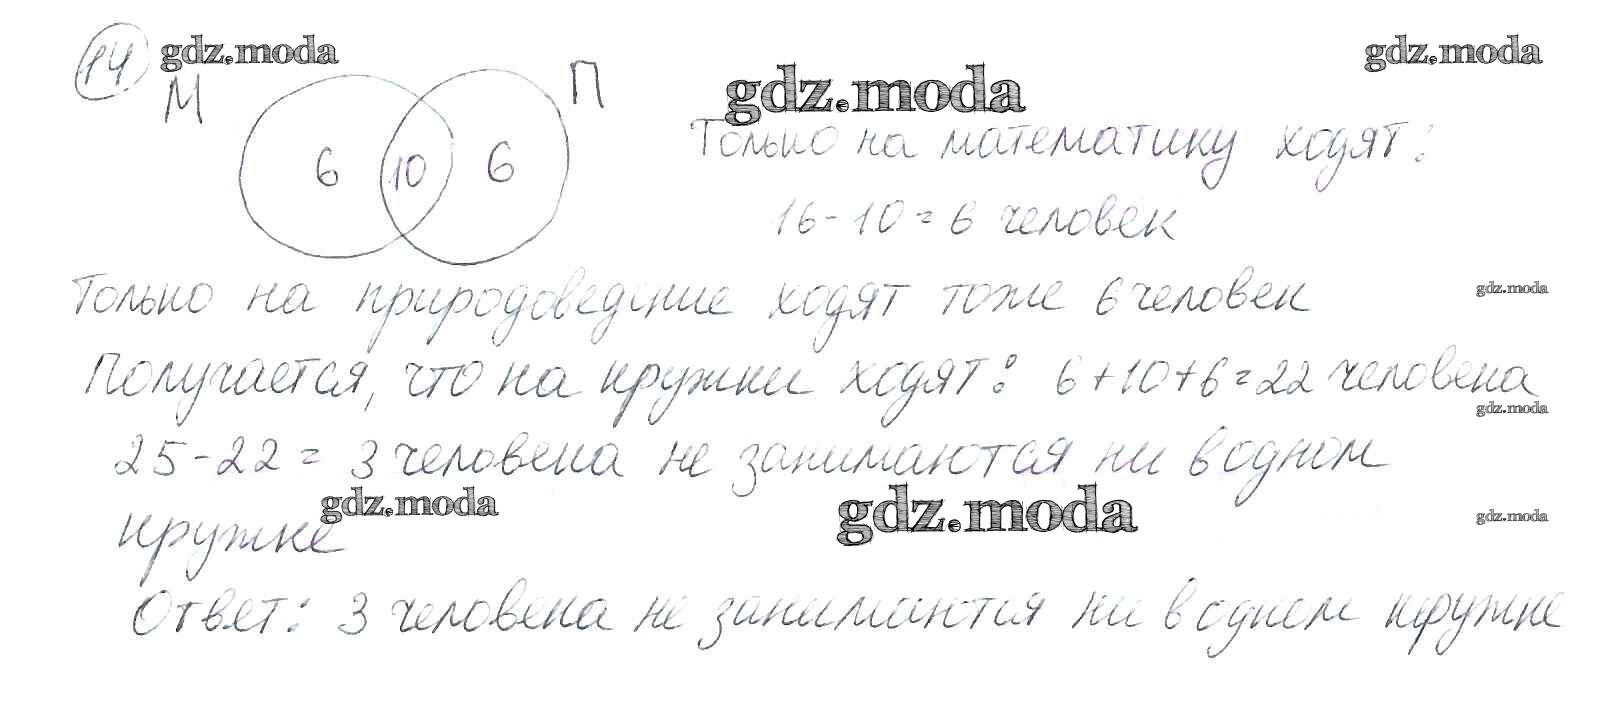 14 gdz.moda gdz.moda
М П gdz.moda
6 10 6 Только на математику ходят:
16-10=6 человек
Только на природоведение ходят тоже 6 человек gdz.moda
Получается, что на кружки ходят: 6+10+6=22 человека
gdz.moda
25-22= 3 человека не занимаются ни в одном
gdz.moda gdz.moda gdz.moda
кружке
Ответ: 3 человека не занимаются ни в одном кружке